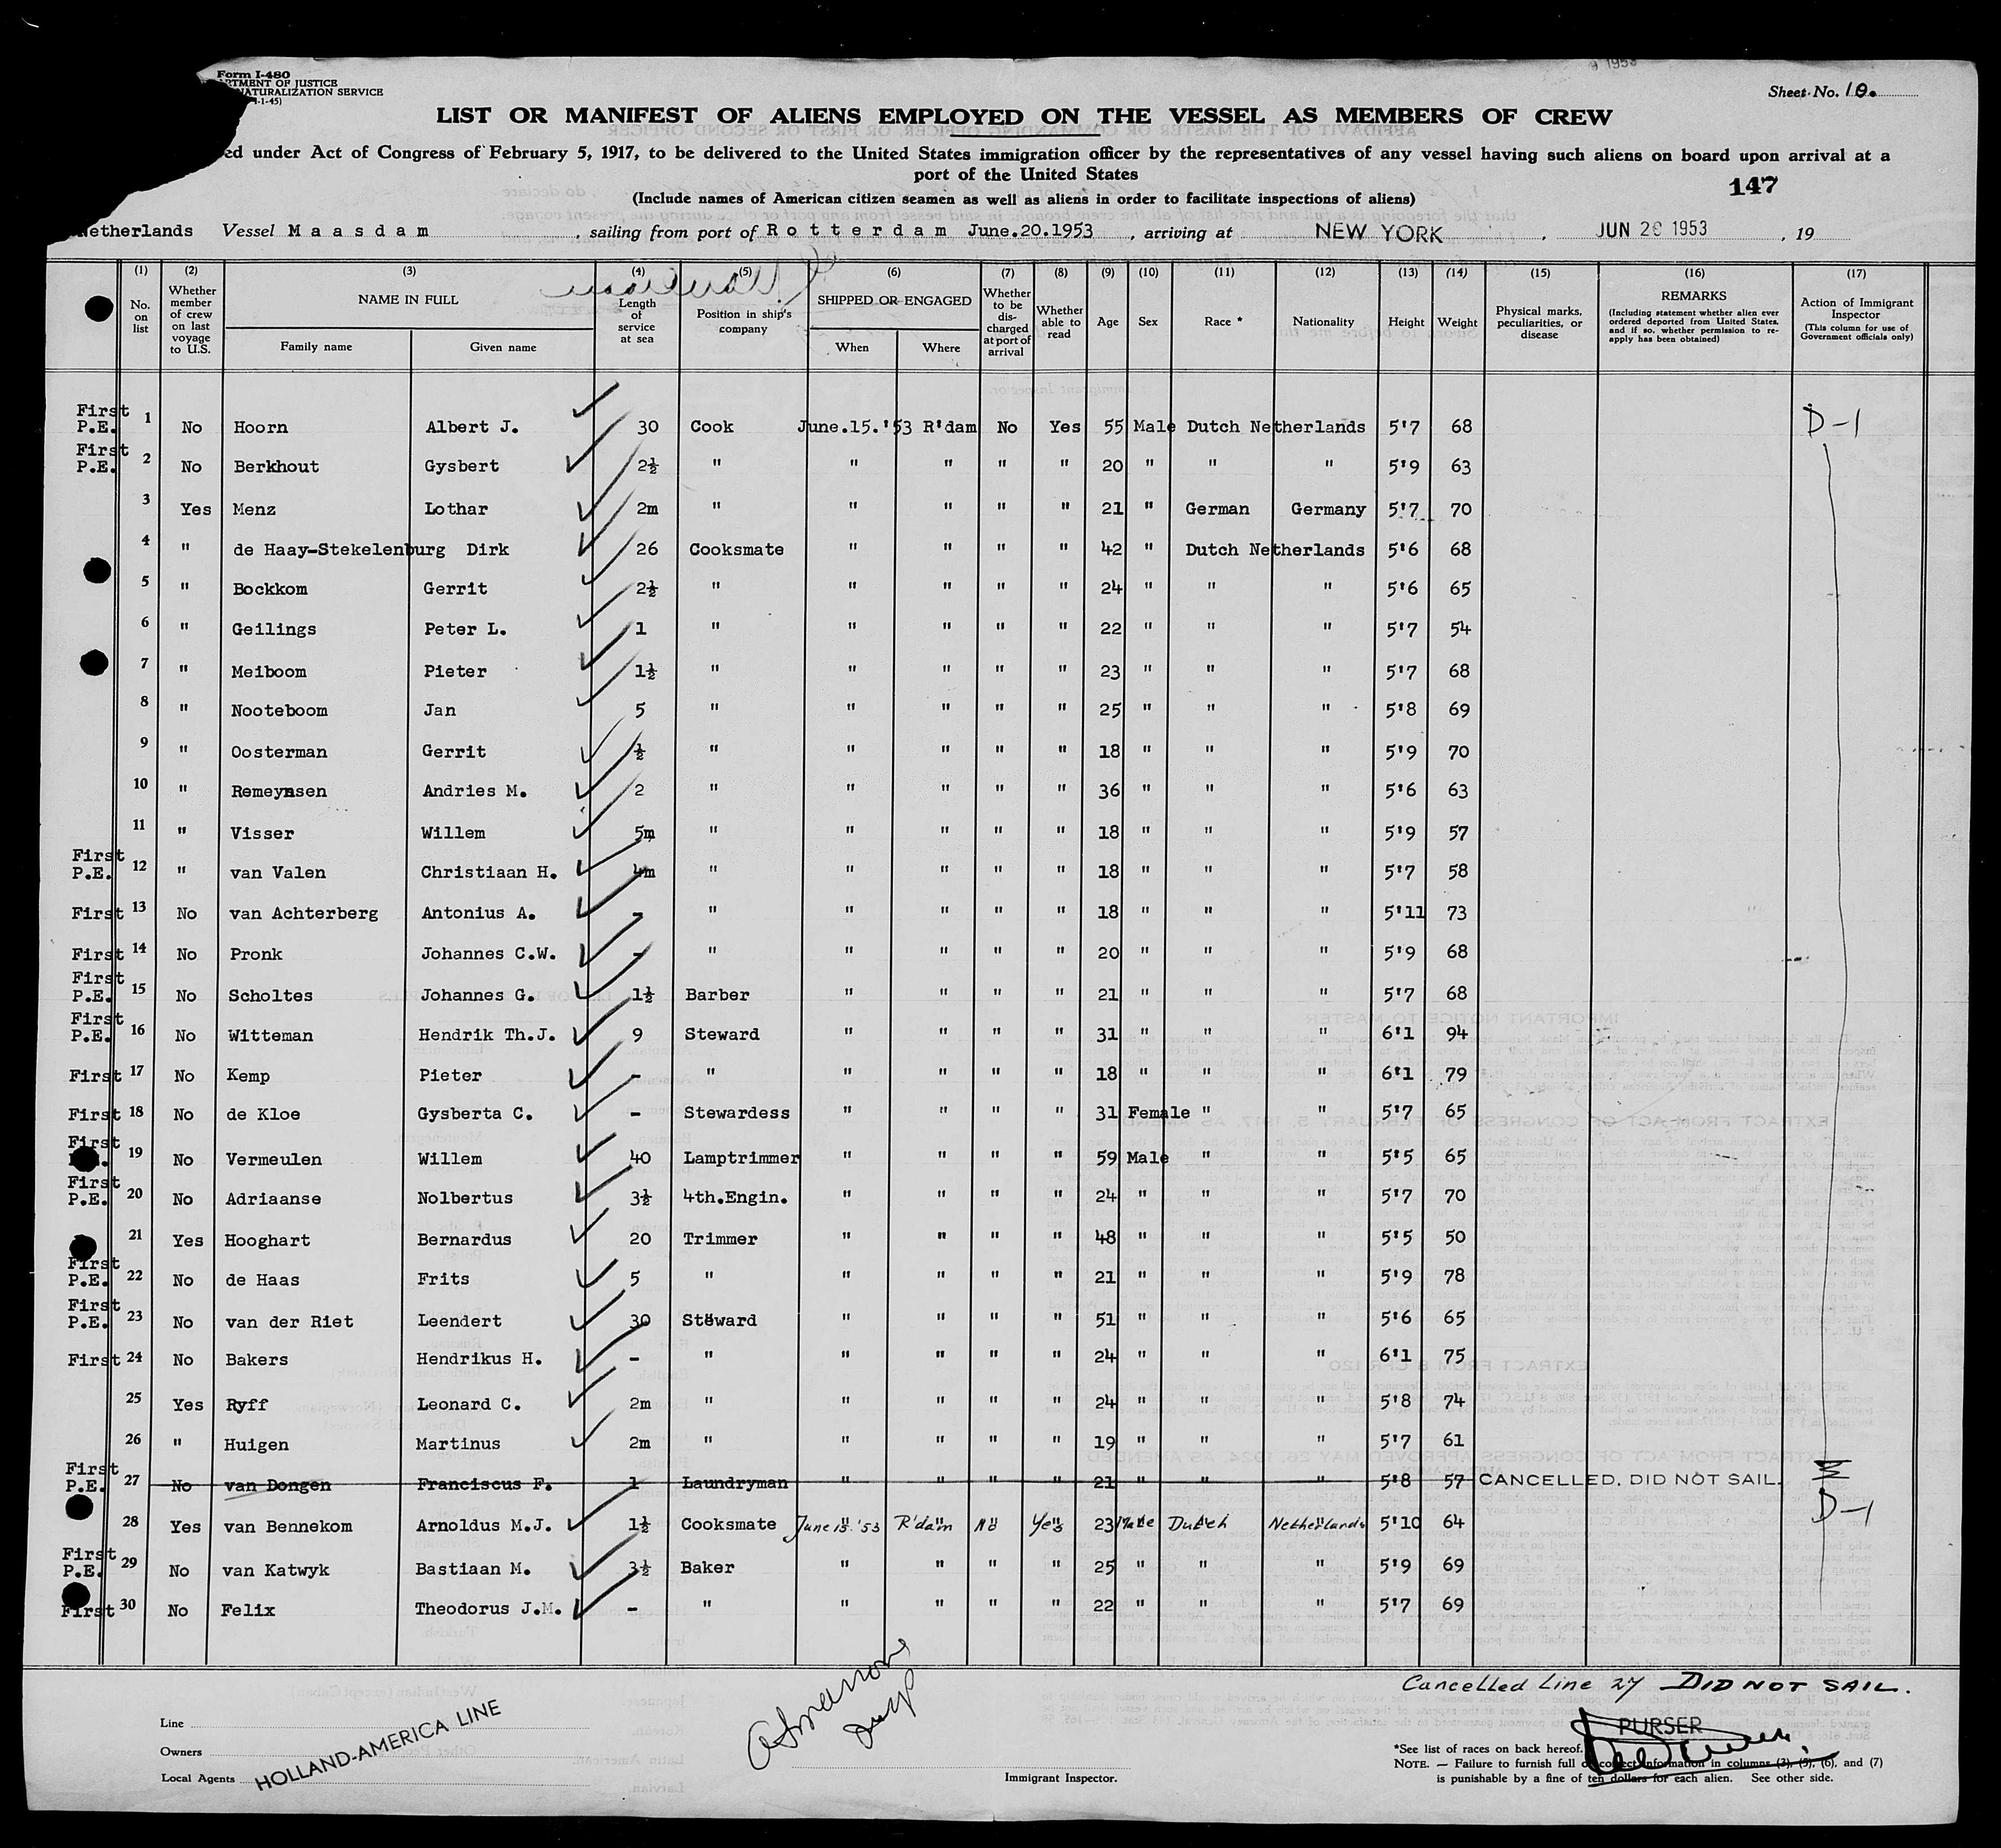 1953
Form I-480
RTMENT OF JUSTICE
NATURALIZATION SERVICE
1-1-45)
Sheet No. 10.
LIST OR MANIFEST OF ALIENS EMPLOYED ON THE VESSEL AS MEMBERS OF CREW
ed under Act of Congress of February 5, 1917, to be delivered to the United States immigration officer by the representatives of any vessel having such aliens on board upon arrival at a
port of the United States
147
(Include names of American citizen seamen as well as aliens in order to facilitate inspections of aliens)
Netherlands Vessel Maasdam, sailing from port of Rotterdam June.20.1953, arriving at NEW YORK, JUN 2 1953, 19
(1) (2) (3) (4) (5) (6) (7) (8) (9) (10) (11) (12) (13) (14) (15) (16) (17)
No. on list Whether member of crew on last voyage to U.S. NAME IN FULL Family name Given name Length of service at sea Position in ship's company SHIPPED OR ENGAGED When Where Whether to be discharged at port of arrival Whether able to read Age Sex Race * Nationality Height Weight Physical marks, peculiarities, or disease REMARKS (Including statement whether alien ever ordered deported from United States, and if so, whether permission to re-apply has been obtained) Action of Immigrant Inspector (This column for use of Government officials only)
First P.E. 1 No Hoorn Albert J. 30 Cook June.15.'53 R'dam No Yes 55 Male Dutch Netherlands 5'7 68 D-1
First P.E. 2 No Berkhout Gysbert 2½ " " " " " 20 " " " 5'9 63
3 Yes Menz Lothar 2m " " " " " 21 " German Germany 5'7 70
4 " de Haay-Stekelenburg Dirk 26 Cooksmate " " " " 42 " Dutch Netherlands 5'6 68
5 " Bockkom Gerrit 2½ " " " " " 24 " " " 5'6 65
6 " Geilings Peter L. 1 " " " " " 22 " " " 5'7 54
7 " Meiboom Pieter 1½ " " " " " 23 " " " 5'7 68
8 " Nooteboom Jan 5 " " " " " 25 " " " 5'8 69
9 " Oosterman Gerrit ½ " " " " " 18 " " " 5'9 70
10 " Remeynsen Andries M. 2 " " " " " 36 " " " 5'6 63
11 " Visser Willem 5m " " " " " 18 " " " 5'9 57
First P.E. 12 " van Valen Christiaan H. 4m " " " " " 18 " " " 5'7 58
First 13 No van Achterberg Antonius A. - " " " " " 18 " " " 5'11 73
First 14 No Pronk Johannes C.W. - " " " " " 20 " " " 5'9 68
First P.E. 15 No Scholtes Johannes G. 1½ Barber " " " " 21 " " " 5'7 68
First P.E. 16 No Witteman Hendrik Th.J. 9 Steward " " " " 31 " " " 6'1 94
First 17 No Kemp Pieter - " " " " " 18 " " " 6'1 79
First 18 No de Kloe Gysberta C. - Stewardess " " " " 31 Female " " 5'7 65
First 19 No Vermeulen Willem 40 Lamptrimmer " " " " 59 Male " " 5'5 65
First P.E. 20 No Adriaanse Nolbertus 3½ 4th.Engin. " " " " 24 " " " 5'7 70
21 Yes Hooghart Bernardus 20 Trimmer " " " " 48 " " " 5'5 50
First P.E. 22 No de Haas Frits 5 " " " " " 21 " " " 5'9 78
First P.E. 23 No van der Riet Leendert 30 Steward " " " " 51 " " " 5'6 65
First 24 No Bakers Hendrikus H. - " " " " " 24 " " " 6'1 75
25 Yes Ryff Leonard C. 2m " " " " " 24 " " " 5'8 74
26 " Huigen Martinus 2m " " " " " 19 " " " 5'7 61
First P.E. 27 No van Dongen Franciscus F. 1 Laundryman " " " " 21 " " " 5'8 57 CANCELLED. DID NOT SAIL.
28 Yes van Bennekom Arnoldus M.J. 1½ Cooksmate June 15. '53 R'dam No Yes 23 Male Dutch Netherlands 5'10 64 D-1
First P.E. 29 No van Katwyk Bastiaan M. 3½ Baker " " " " 25 " " " 5'9 69
First 30 No Felix Theodorus J.M. - " " " " " 22 " " " 5'7 69
Cancelled Line 27 DID NOT SAIL.
Line
Owners
Local Agents
HOLLAND-AMERICA LINE
Immigrant Inspector.
PURSER
*See list of races on back hereof.
NOTE. — Failure to furnish full or correct information in columns (3), (5), (6), and (7)
is punishable by a fine of ten dollars for each alien. See other side.